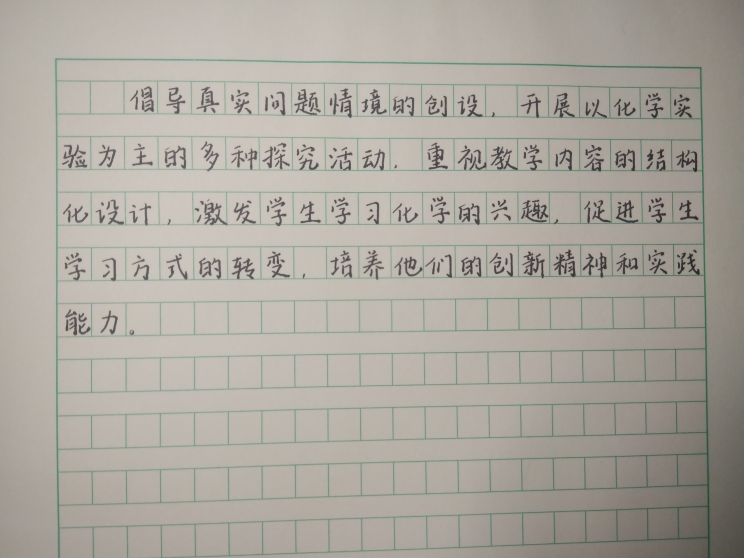 倡导真实问题情境的创设，开展以化学实
验为主的多种探究活动，重视教学内容的结构
化设计，激发学生学习化学的兴趣，促进学生
学习方式的转变，培养他们的创新精神和实践
能力。